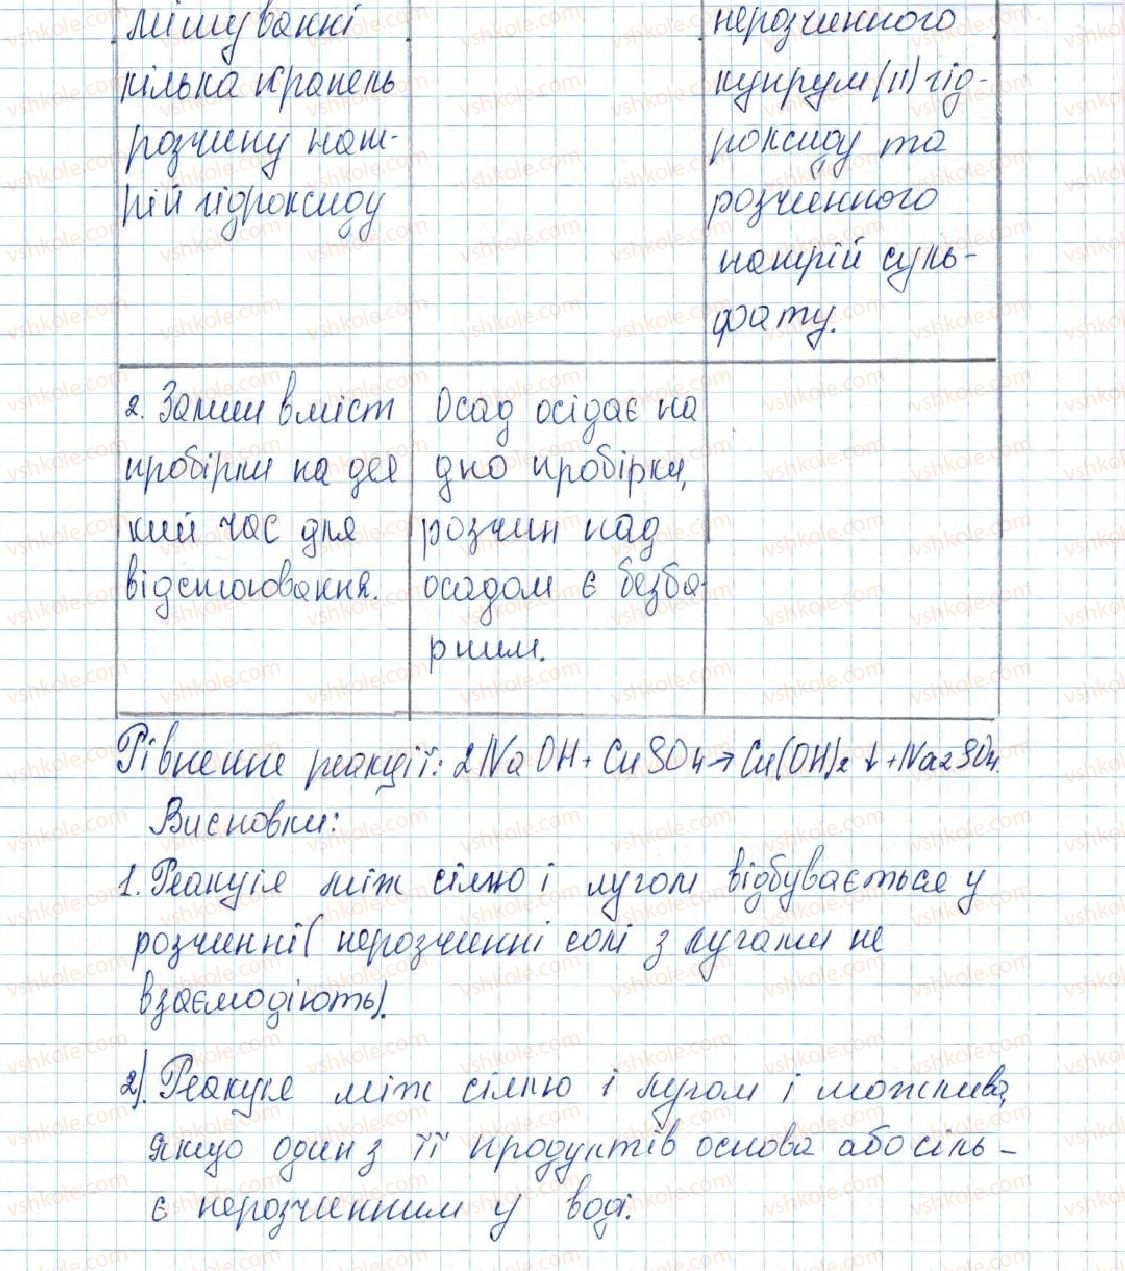 мішуванні
кілька крапель
розчину нат-
рій гідроксиду
нерозчинного
купрум(II)гід-
роксиду та
розчинного
натрій суль-
фату.
2. Залиш вміст
пробірки на дея
кий час для
відстоювання.
Осад осідає на
дно пробірки,
розчин над
осадом є безба-
рним.
Рівнення реакції: 2NaOH + CuSO4 → Cu(OH)2 ↓ + Na2SO4.
Висновки:
1. Реакція між сіллю і лугом відбувається у
розчинні( нерозчинні солі з лугами не
взаємодіють).
2). Реакція між сіллю і лугом і можлива,
якщо один з її продуктів основа або сіль -
є нерозчинним у воді.